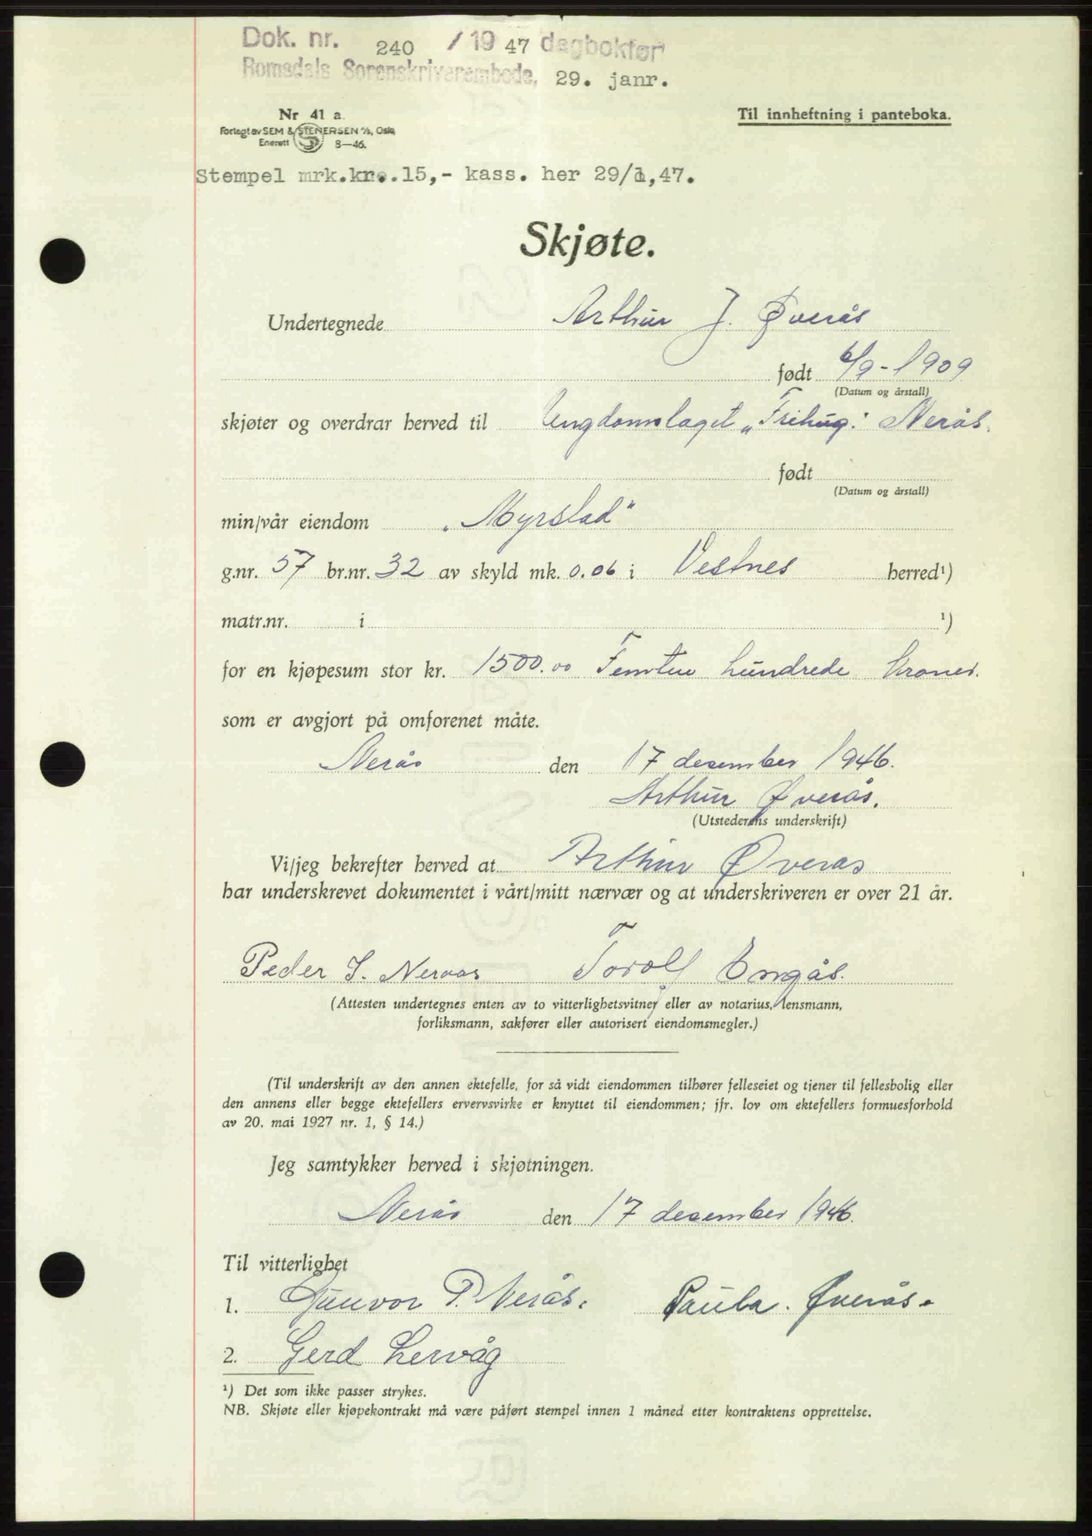 Dok. nr. 240 / 19 47 dagbokført
Romsdals Sorenskriverembede, 29. janr.
Nr 41 a.
Forlagt av SEM & STENERSEN A/S, Oslo
Enerett 8—46.
Til innheftning i panteboka.
Stempel mrk.kr..15,- kass. her 29/1,47.
Skjøte.
Undertegnede Arthur J. Øverås
født 6/9-1909
(Datum og årstall)
skjøter og overdrar herved til Ungdomslaget „Frihug." Nerås.
født
(Datum og årstall)
min/vår eiendom „Myrslad"
g.nr. 57 br.nr. 32 av skyld mk. 0.06 i Vestnes herred¹)
matr.nr. i ¹)
for en kjøpesum stor kr. 1500.00 Femten hundrede kroner.
som er avgjort på omforenet måte.
Nerås den 17 desember 1946.
Arthur Øverås.
(Utstederens underskrift)
Vi/jeg bekrefter herved at Arthur Øverås
har underskrevet dokumentet i vårt/mitt nærvær og at underskriveren er over 21 år.
Peder I. Neraas Torolf Engås.
(Attesten undertegnes enten av to vitterlighetsvitner eller av notarius, lensmann,
forliksmann, sakfører eller autorisert eiendomsmegler.)
(Til underskrift av den annen ektefelle, for så vidt eiendommen tilhører felleseiet og tjener til fellesbolig eller
den annens eller begge ektefellers ervervsvirke er knyttet til eiendommen; jfr. lov om ektefellers formuesforhold
av 20. mai 1927 nr. 1, § 14.)
Jeg samtykker herved i skjøtningen.
Nerås den 17 desember 1946.
Til vitterlighet
1. Gunvor P. Nerås. Paula. Øverås.
2. Gerd Lervåg
¹) Det som ikke passer strykes.
NB. Skjøte eller kjøpekontrakt må være påført stempel innen 1 måned etter kontraktens opprettelse.